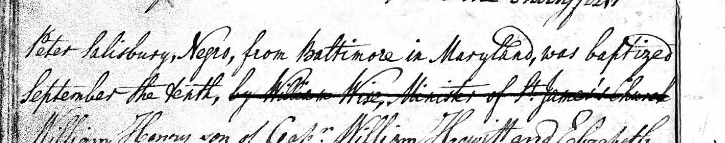 Peter Salisbury, Negro, from Baltimore in Maryland, was baptized
September the tenth, by William Wise, Minister of St. James's Church
William Henry son of Capn. William Hewitt and Elizabeth